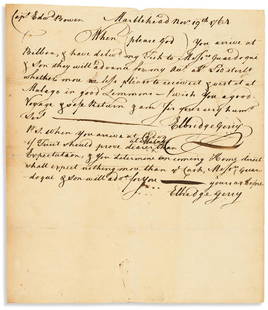 Cap^t Edw^d Bowen Marblehead Nov 19th 1764
(When please God) You arrive at
Bilboa, & have deliv^d my Fish to Mess^rs Guardoque
& Son they will advance for my Acc^t
whether more or less please to rec^d &
Malaga in good Lemmons I wish You a good
Voyage & safe Return & am for your very hum^e
Serv^t
Elbridge Gerry
P.S. When you arrive at
if Fruit should prove dearer than
Expectation, & You determine on coming Home direct
shall expect nothing more than y^e Cash, Mess^rs Guar-
doque & Son will adv^ce for You yours as before
Elbridge Gerry